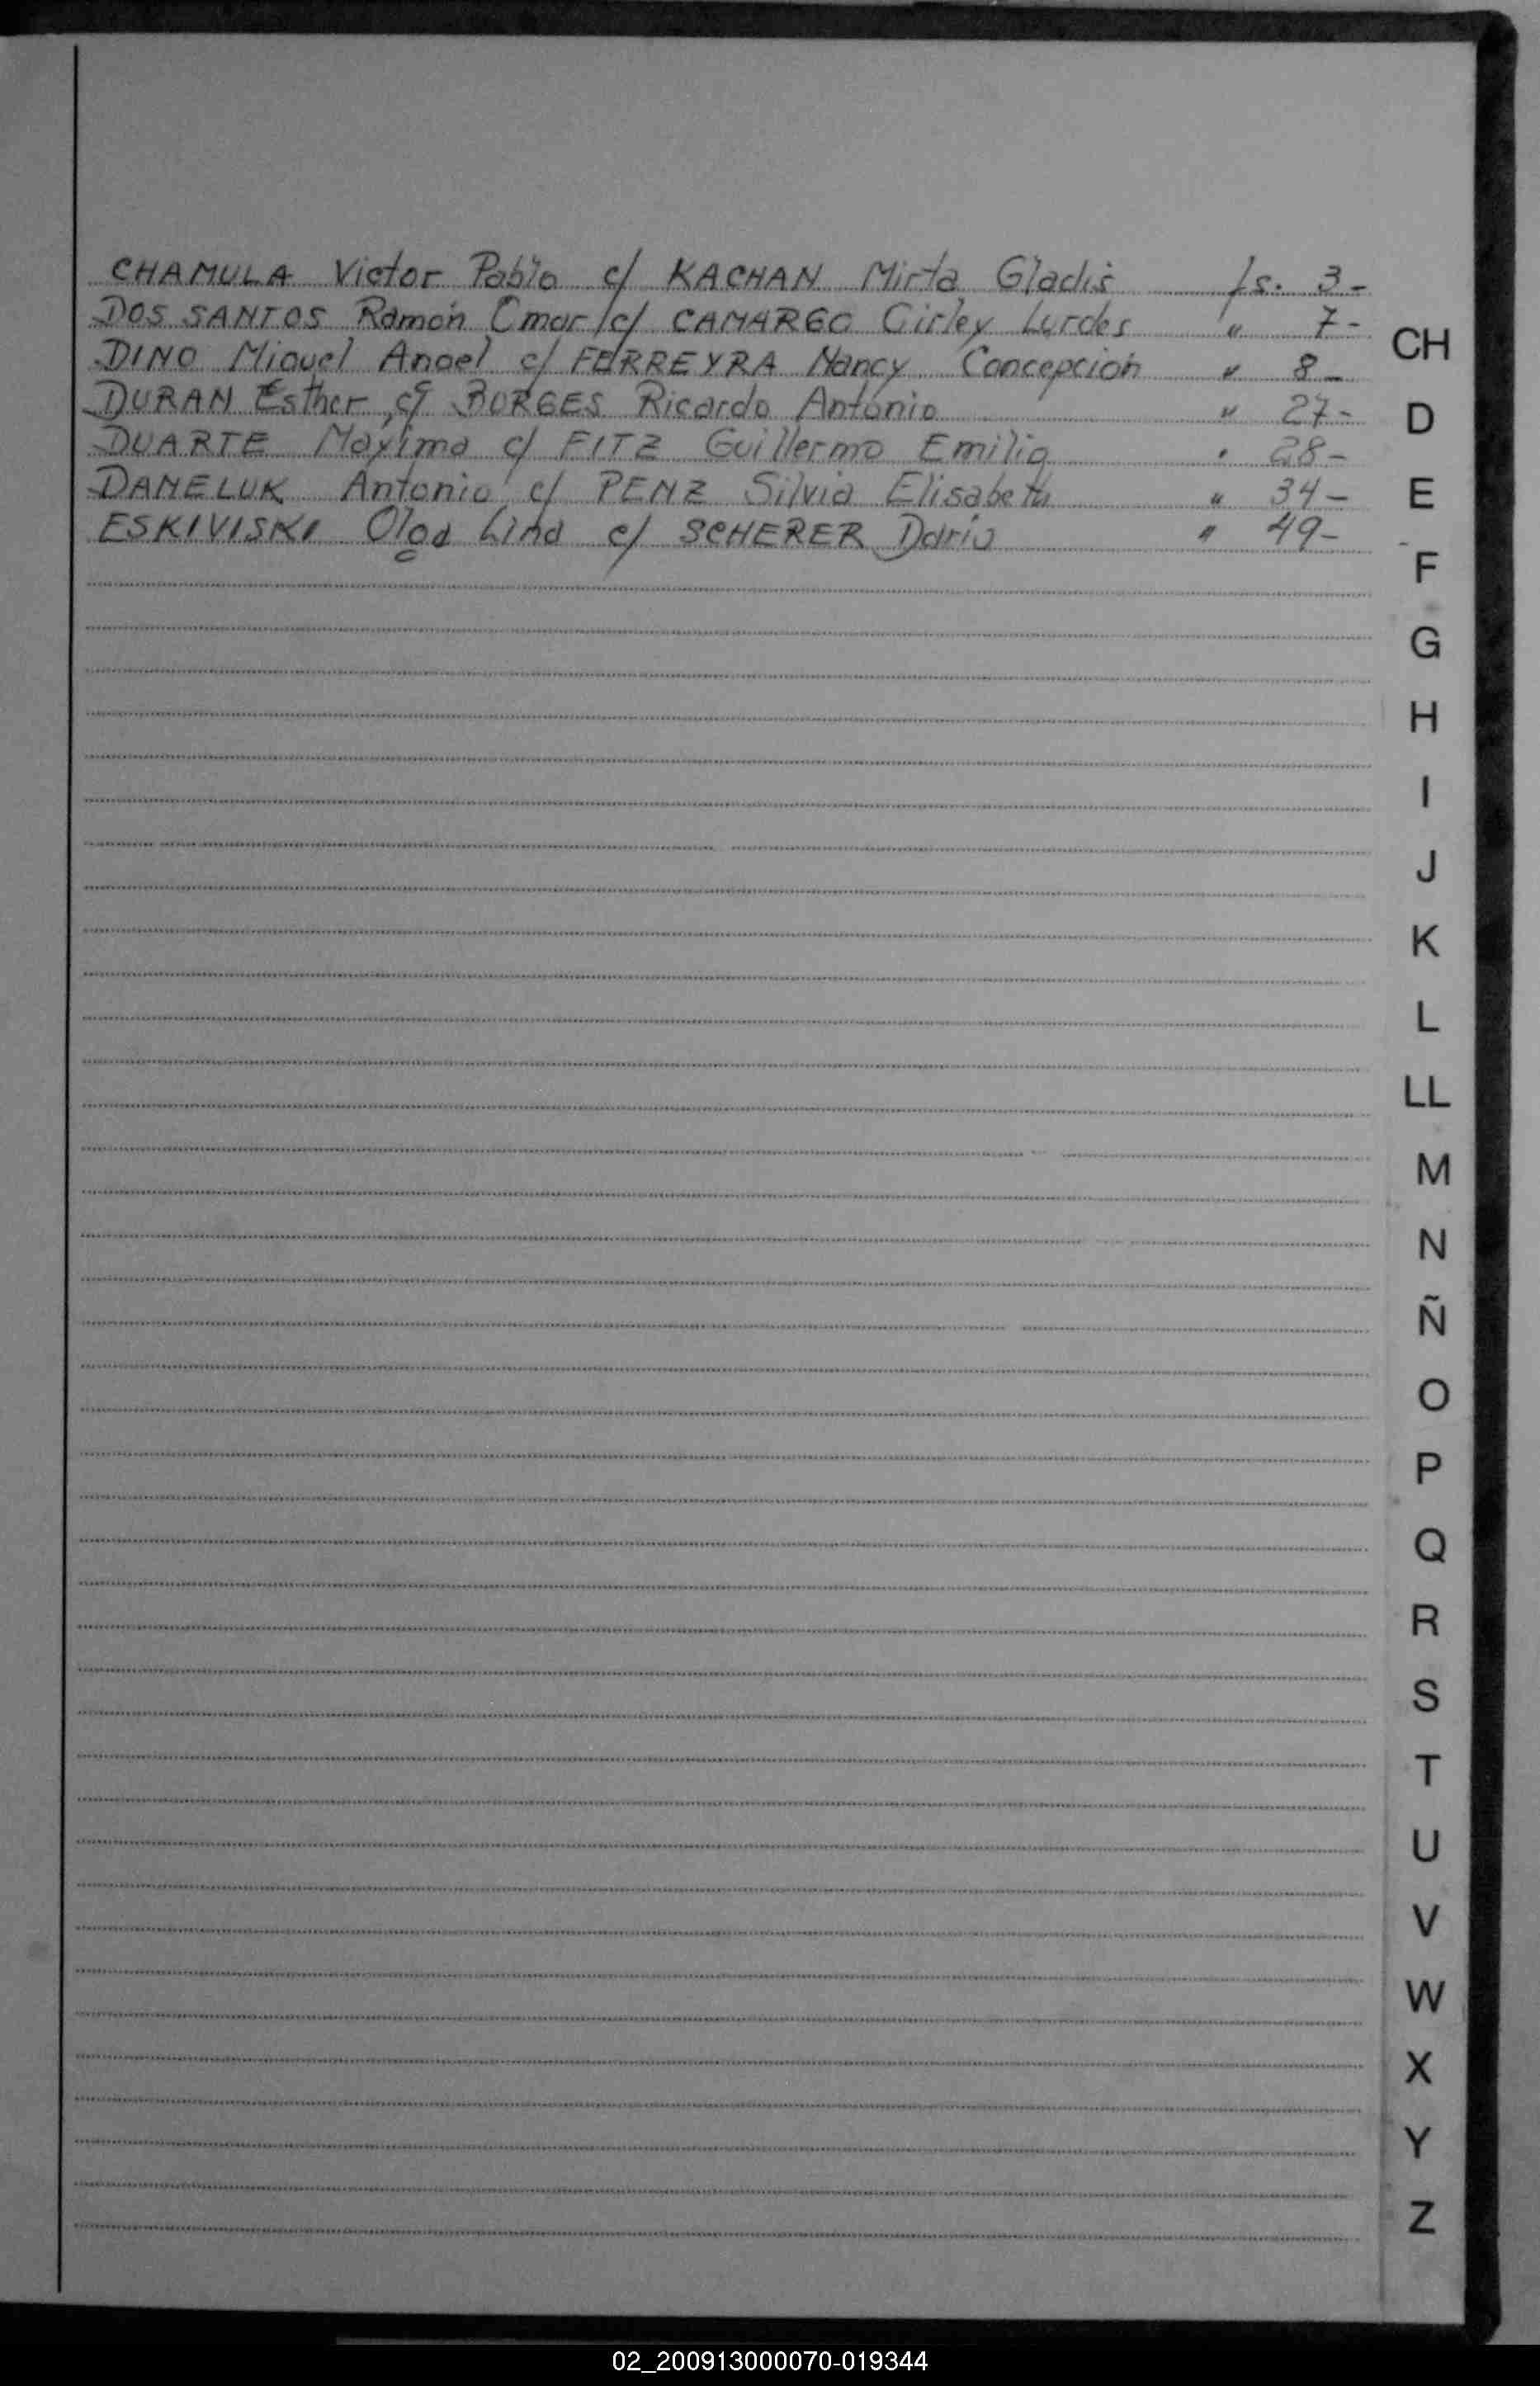 CHAMULA Victor Pablo c/ KACHAN Mirta Gladis fs. 3-
DOS SANTOS Ramón Omar c/ CAMARGO Cirley Lurdes " 7-
DINO Miguel Angel c/ FERREYRA Nancy Concepción " 8-
DURAN Esther c/ BORGES Ricardo Antonio " 27-
DUARTE Maxima c/ FITZ Guillermo Emilio " 28-
DANELUK Antonio c/ PENZ Silvia Elisabeth " 34-
ESKIVISKI Olga Lina c/ SCHERER Dario " 49-
CH
D
E
F
G
H
I
J
K
L
LL
M
N
Ñ
O
P
Q
R
S
T
U
V
W
X
Y
Z
02_200913000070-019344